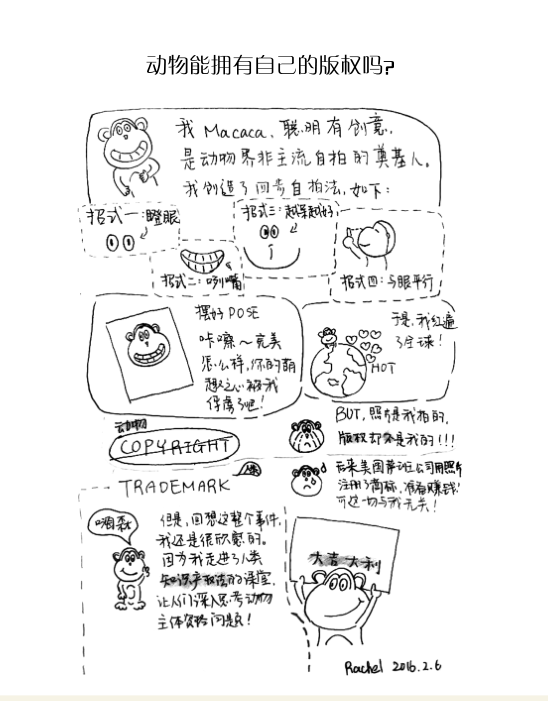 动物能拥有自己的版权吗?
我 Macaca, 聪明有创意,
是动物界非主流自拍的奠基人。
我创造了四步自拍法, 如下:
招式一: 瞪眼
招式二: 咧嘴
招式三: 越呆越好
招式四: 与眼平行
摆好 POSE
咔嚓~完美
怎么样, 你的萌
想之心被我
俘虏了吧!
于是, 我红遍
了全球!
HOT
动物
COPYRIGHT
BUT, 照片是我拍的,
版权却不是我的!!!
TRADEMARK
后来美国某社公司用照片
注册了商标, 准备赚钱!
可这一切与我无关!
嗨森
但是, 回想这整个事件,
我还是很欣慰的。
因为我走进了人类
知识产权法的课堂,
让人们深入思考动物
主体资格问题!
大吉大利
Rachel 2016.2.6